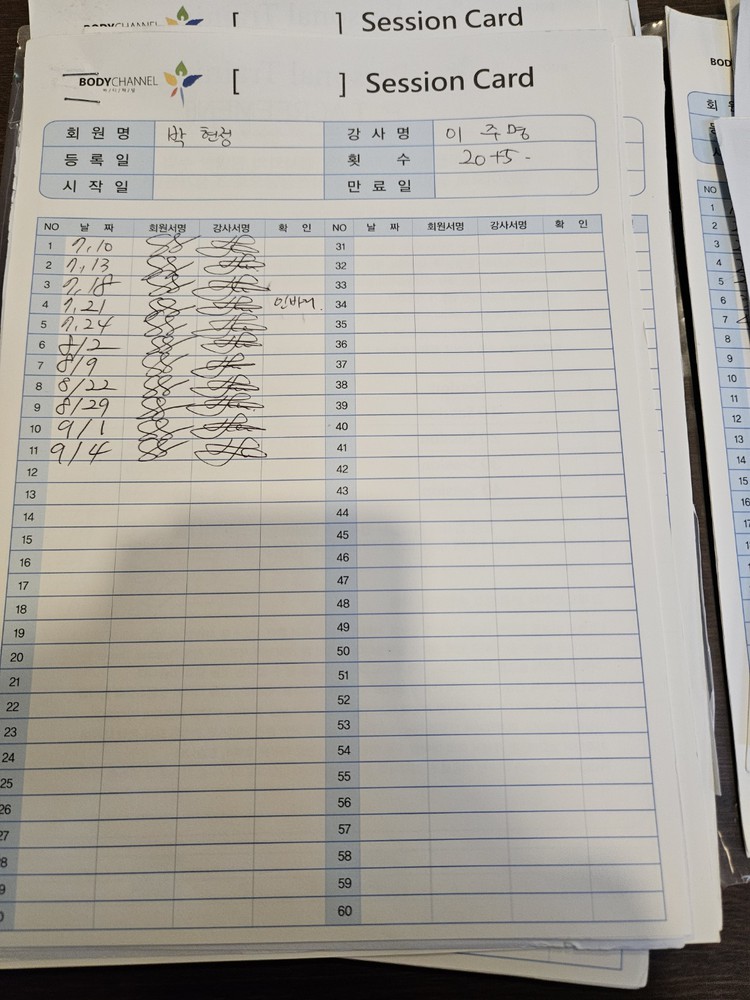 [ ] Session Card
BODYCHANNEL
바디채널
[ ] Session Card
회원명 박현정 강사명 이주명
등록일 횟수 20+5-
시작일 만료일
NO 날짜 회원서명 강사서명 확인 NO 날짜 회원서명 강사서명 확인
1 7,10 31
2 7,13 32
3 7,18 33
4 7,21 인바디. 34
5 7,24 35
6 8/2 36
7 8/9 37
8 8/22 38
9 8/29 39
10 9/1 40
11 9/4 41
12 42
13 43
14 44
15 45
16 46
17 47
18 48
19 49
20 50
21 51
22 52
23 53
24 54
25 55
26 56
27 57
8 58
9 59
0 60
BOD
회원
NO
1
2
3
4
5
6
7
8
9
10
11
12
13
14
15
16